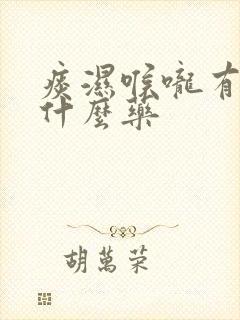 痰濕喉嚨有
什麼藥
胡萬荣